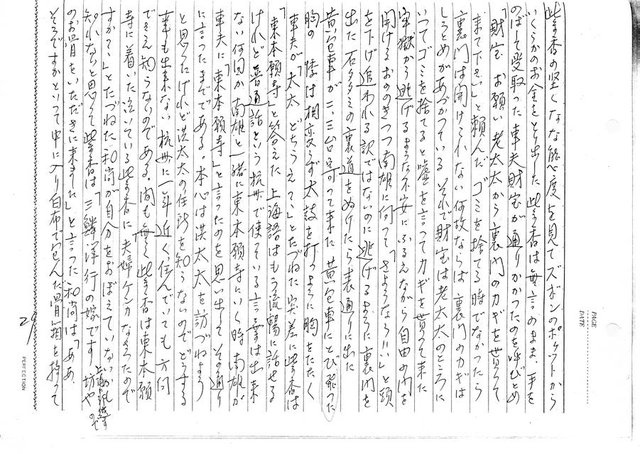 紫香の堅くなな態度を見てズボンのポケットから
いくらかのお金をとり出した紫香は無言のまま、手を
のばして受取った車夫財宝が通りかかったのを呼びとめ
「財宝お願い老太太から裏門のカギを貰って
来て下さい」と頼んだ。ゴミを捨てる時でなかったら
裏門は開けてくれない何故ならば裏門のカギは
しうとめがあづかっている それで財宝は老太太のところに
いってゴミを捨てると嘘を言ってカギを貰って来た
牢獄から逃げるような不安にふるえながら自由の門を
開けるおののきつつ南雄に向って「さようなら」と頭
を下げ追われる訳ではないのに逃げるように裏門を
出た石多くの裏道をぬけたら表通りに出た
黄包車が二、三台寄って来た 黄包車にとび乗った
胸の 相変らず太鼓を打つように胸をたたく
車夫が「太太どちらえ?」とたづねた突差に紫香は
「東本願寺」と答えた 上海語はもう流暢に話せる
けれど普通話という杭州で使っている言葉は出来
ない何回か南雄と一緒に東本願寺にいく時南雄が
車夫に「東本願寺」と言ったのを思い出してその通り
に言ったまでである。本心は洪太太を訪づねよう
と思ったけれど洪太太の住所を知らないのでどうする
事も出来ない杭州に一年近く住んでいても方向
でさえ知らないのである、間も無く紫香は東本願
寺に着いた泣いている紫香に「夫婦ケンカなさったので
すか?」とたづねた和尚が自分をおぼえていないかも
知れないと思って紫香は「三鱗洋行の嫁です 坊やの
のお骨をいただきに来ました」と言った和尚は「ああ
そうですか」といって中に入り白布で包んだ骨箱を持って
29
PAGE
DATE
PERFECTION